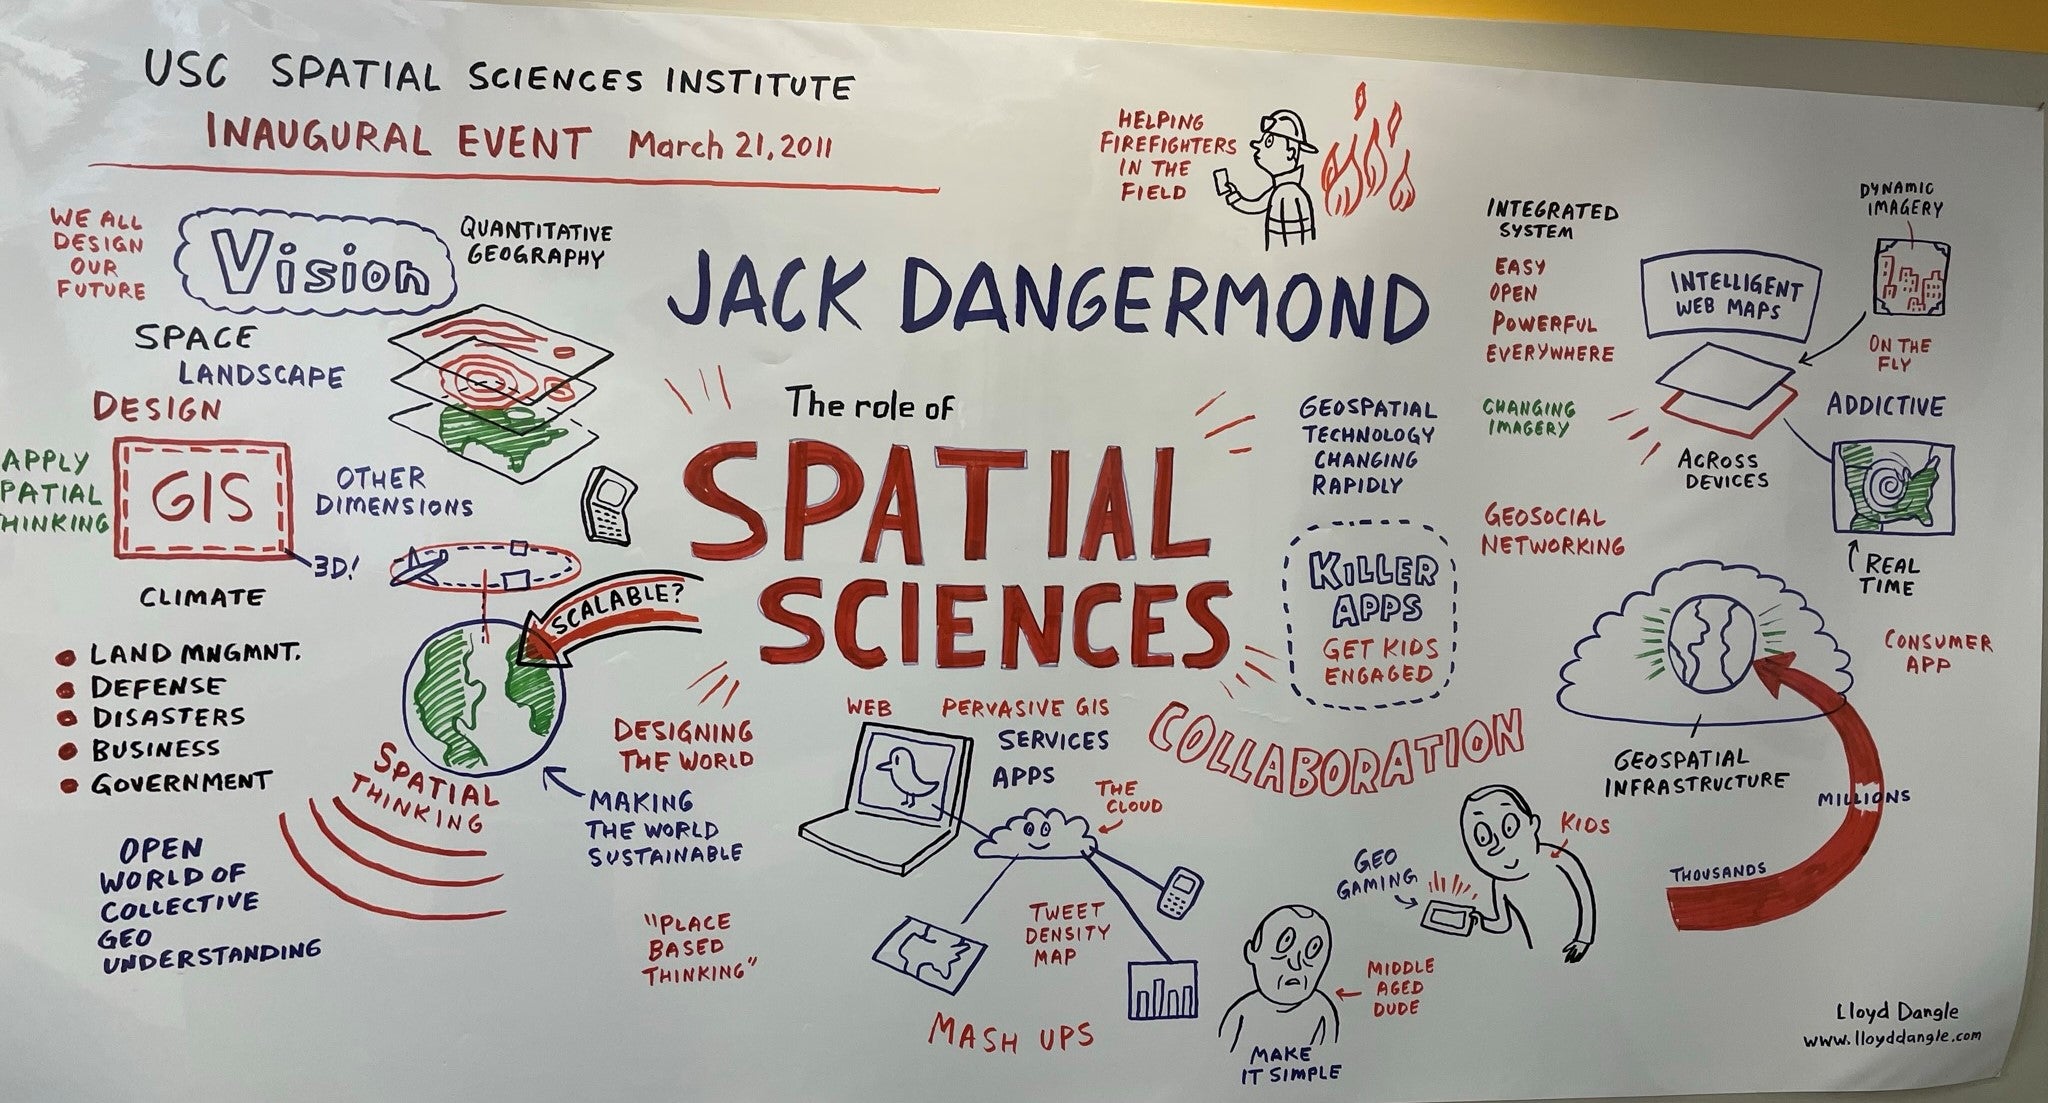 USC SPATIAL SCIENCES INSTITUTE
INAUGURAL EVENT March 21, 2011
WE ALL
DESIGN
OUR
FUTURE
Vision
QUANTITATIVE
GEOGRAPHY
SPACE
LANDSCAPE
DESIGN
APPLY
PATIAL
HINKING
GIS
OTHER
DIMENSIONS
3D!
CLIMATE
LAND MNGMNT.
DEFENSE
DISASTERS
BUSINESS
GOVERNMENT
SCALABLE?
SPATIAL
THINKING
OPEN
WORLD OF
COLLECTIVE
GEO
UNDERSTANDING
DESIGNING
THE WORLD
MAKING
THE WORLD
SUSTAINABLE
"PLACE
BASED
THINKING"
HELPING
FIREFIGHTERS
IN THE
FIELD
JACK DANGERMOND
The role of
SPATIAL
SCIENCES
WEB
PERVASIVE GIS
SERVICES
APPS
THE
CLOUD
TWEET
DENSITY
MAP
MASH UPS
GEOSPATIAL
TECHNOLOGY
CHANGING
RAPIDLY
KILLER
APPS
GET KIDS
ENGAGED
COLLABORATION
KIDS
GEO
GAMING
MIDDLE
AGED
DUDE
MAKE
IT SIMPLE
INTEGRATED
SYSTEM
EASY
OPEN
POWERFUL
EVERYWHERE
CHANGING
IMAGERY
GEOSOCIAL
NETWORKING
INTELLIGENT
WEB MAPS
DYNAMIC
IMAGERY
ON THE
FLY
ADDICTIVE
ACROSS
DEVICES
REAL
TIME
CONSUMER
APP
GEOSPATIAL
INFRASTRUCTURE
MILLIONS
THOUSANDS
Lloyd Dangle
www.lloyddangle.com